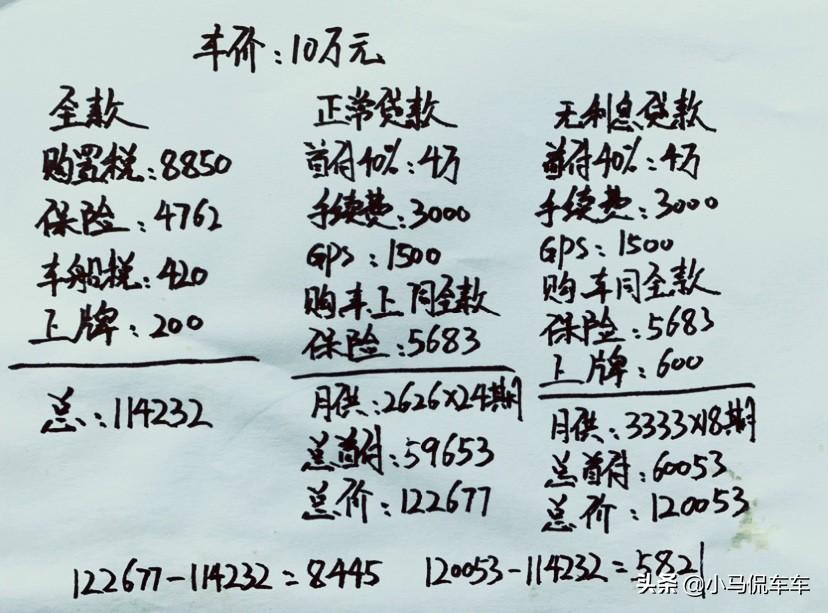 车价：10万元
全款
购置税：8850
保险：4762
车船税：420
上牌：200
总：114232
正常贷款
首付40%：4万
手续费：3000
GPS：1500
购车上同全款
保险：5683
月供：2626×24期
总首付：59653
总价：122677
无利息贷款
首付40%：4万
手续费：3000
GPS：1500
购车同全款
保险：5683
上牌：600
月供：3333×18期
总首付：60053
总价：120053
122677-114232=8445
120053-114232=5821
头条 @小马侃车车